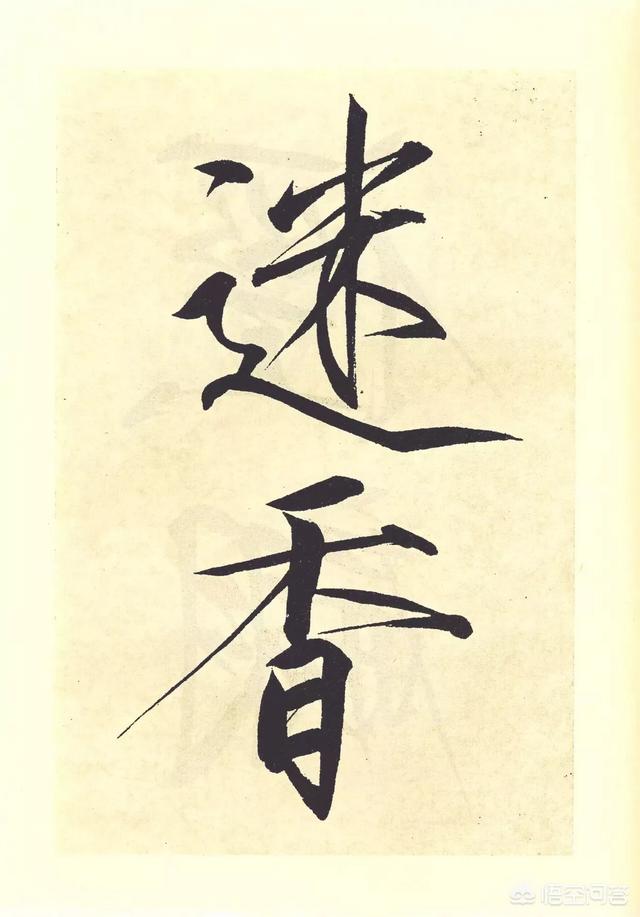 迷
香
悟空问答